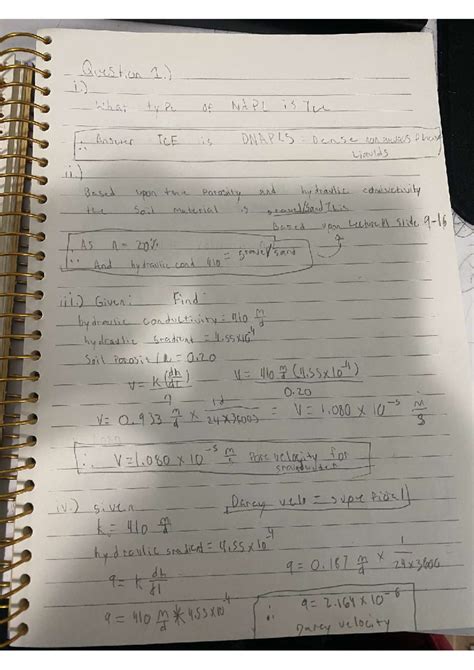 Question 1.)
i.)
What type of NAPL is Tce
∴ Answer TCE is DNAPLS - Dense
Liquids
ii.)
Based upon the Porosity and hydraulic conductivity
the Soil material is gravel/Sand This
Based upon Lecture Slide 9-16
As n = 20%
∴ And hydraulic cond 410 = gravel/sand
iii.) Given: Find:
hydraulic conductivity = 410 m/d
hydraulic gradient = 4.55x10^-4
Soil Porosity n = 0.20
V = K(dh/dl)/η V = 410 m/d (4.55x10^-4)/0.20
V = 0.933 m/d × 1d/24x3600s = V = 1.080 × 10^-5 m/s
∴ V = 1.080 × 10^-5 m/s Pore velocity for
groundwater
iv.) given Darcy velo = superficial
K = 410 m/d
hydraulic gradient = 4.55x10^-4
q = K dh/dl q = 0.187 m/d × 1/24x3600
q = 410 m/d * 4.55x10^-4 ∴ q = 2.164x10^-6
Darcy velocity